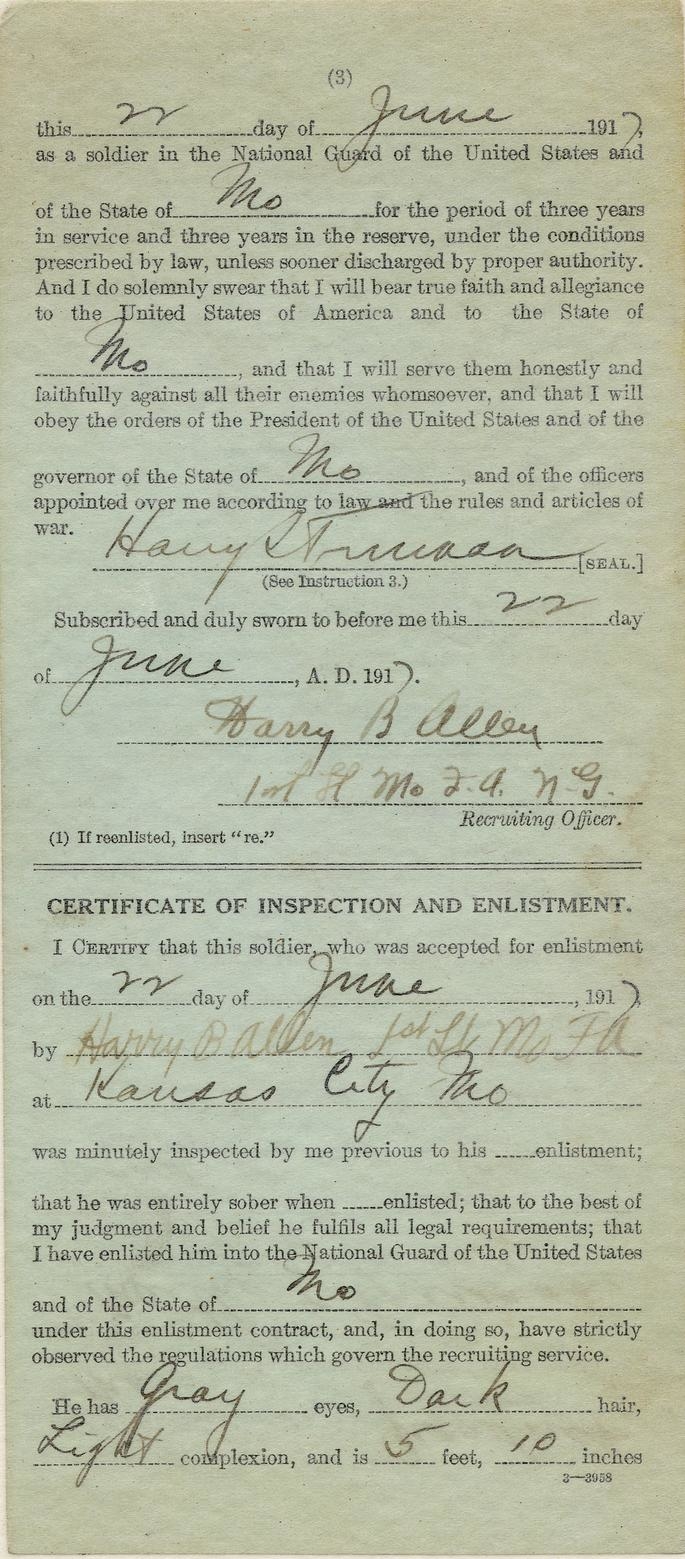 (3)
this 22 day of June 1917,
as a soldier in the National Guard of the United States and
of the State of Mo for the period of three years
in service and three years in the reserve, under the conditions
prescribed by law, unless sooner discharged by proper authority.
And I do solemnly swear that I will bear true faith and allegiance
to the United States of America and to the State of
Mo, and that I will serve them honestly and
faithfully against all their enemies whomsoever, and that I will
obey the orders of the President of the United States and of the
governor of the State of Mo, and of the officers
appointed over me according to law and the rules and articles of
war.
Harry S Truman [SEAL.]
(See Instruction 3.)
Subscribed and duly sworn to before me this 22 day
of June, A. D. 1917.
Harry B Allen
1st Lt Mo F.A. N.G.
Recruiting Officer.
(1) If reenlisted, insert "re."
CERTIFICATE OF INSPECTION AND ENLISTMENT.
I CERTIFY that this soldier, who was accepted for enlistment
on the 22 day of June, 1917,
by Harry B Allen 1st Lt Mo FA
at Kansas City Mo
was minutely inspected by me previous to his ......enlistment;
that he was entirely sober when ......enlisted; that to the best of
my judgment and belief he fulfils all legal requirements; that
I have enlisted him into the National Guard of the United States
and of the State of Mo
under this enlistment contract, and, in doing so, have strictly
observed the regulations which govern the recruiting service.
He has Gray eyes, Dark hair,
Light complexion, and is 5 feet, 10 inches
3—3958